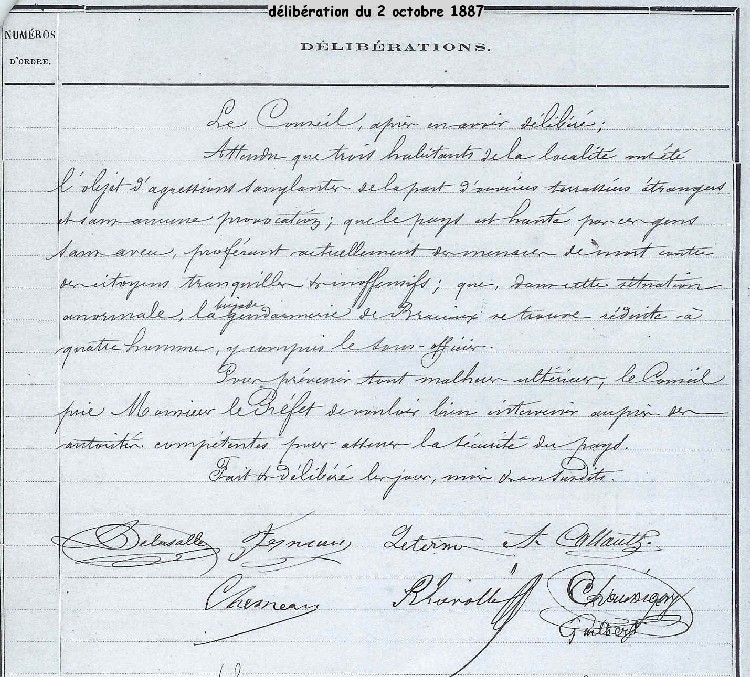 délibération du 2 octobre 1887
NUMÉROS
D'ORDRE.
DÉLIBÉRATIONS.
Le Conseil, après en avoir délibéré;
Attendu que trois habitants de la localité ont été
l'objet d'agressions sanglantes de la part d'ouvriers terrassiers étrangers
et sans aucune provocation; que le pays est hanté par ces gens
sans aveu, proférant actuellement des menaces de mort contre
des citoyens tranquilles & inoffensifs; que, dans cette situation
anormale, la brigade gendarmerie de se trouve réduite à
quatre hommes, y compris le sous-officier.
Pour prévenir tout malheur ultérieur, le Conseil
prie Monsieur le Préfet de vouloir bien intervenir auprès des
autorités compétentes pour assurer la sécurité du pays.
Fait & délibéré les jour, mois & an susdits.
Delasalle
Chesneau
Guilbert